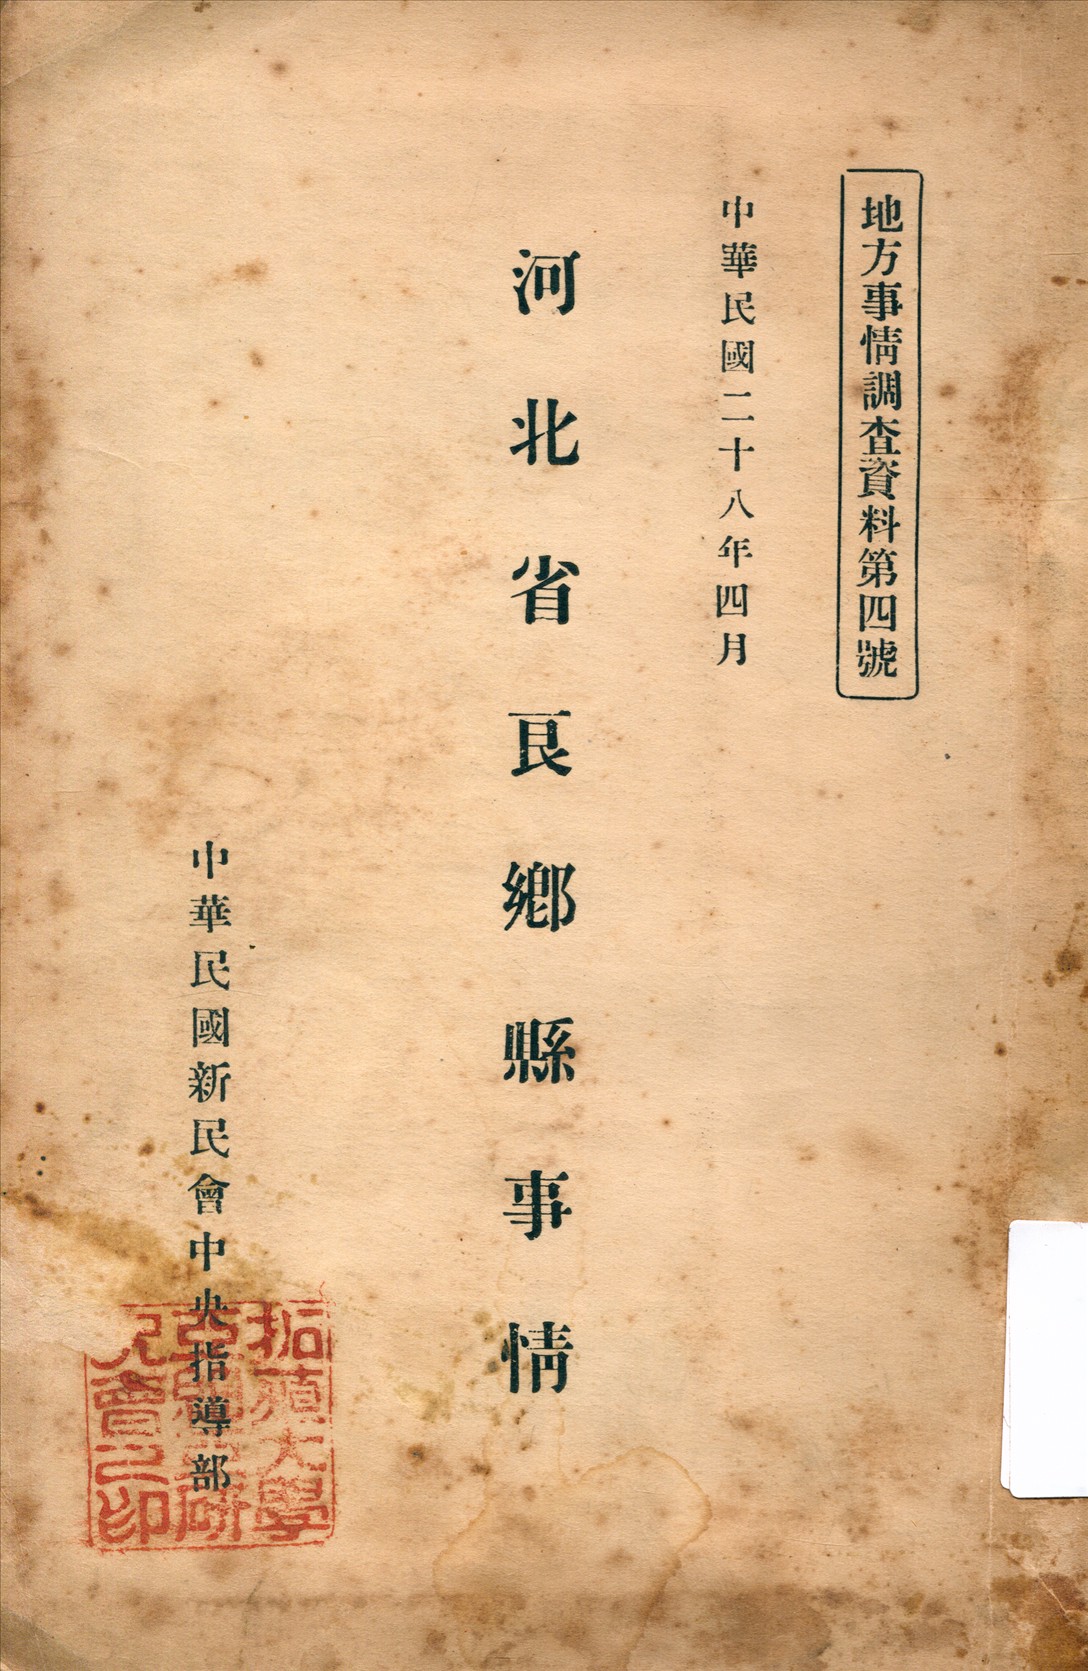 地方事情調査資料第四號
中華民國二十八年四月
河北省良鄉縣事情
中華民國新民會中央指導部
拓殖大學
究會之印